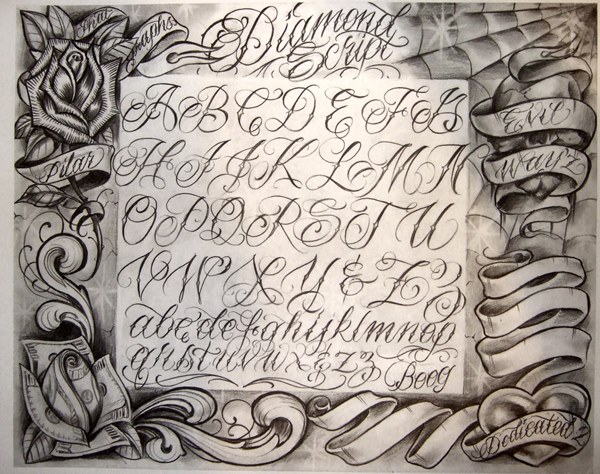 Diamond
Script
A B C D E F G
H I J K L M N
O P Q R S T U
V W X Y & Z Z
abcdefghijklmnop
qrstuvwxyz&Zz
Boog
Pilar
Evil
Wayz
Dedicated